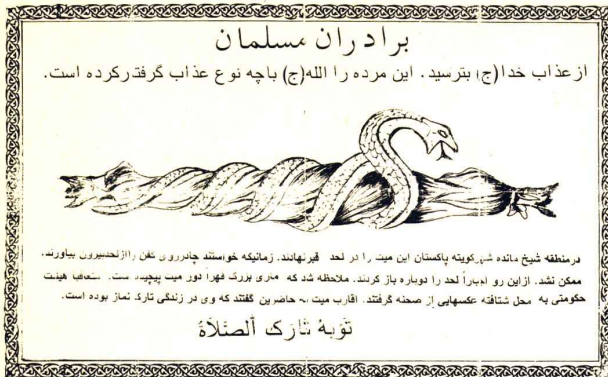 برادران مسلمان
از عذاب خدا (ج) بترسید. این مرده را الله (ج) باچه نوع عذاب گرفتر کرده است.
درمنطقه شیخ مانده شهرکویته پاکستان این میت را در لحد قبرنهادند. زمانیکه خواستند چادرروی کفن راازلحدبیرون بیاورند.
ممکن نشد. ازاین رو اجباراً لحد را دوباره باز کردند. ملاحظه شد که ماری بزرگ قهراً دور میت پیچیده ست. متعاقب هیئت
حکومتی به محل شتافته عکسهایی از صحنه گرفتند. اقارب میت به حاضرین گفتند که وی در زندگی تارک نماز بوده است.
تَوبَهٔ تارک ألصَلاَةُ